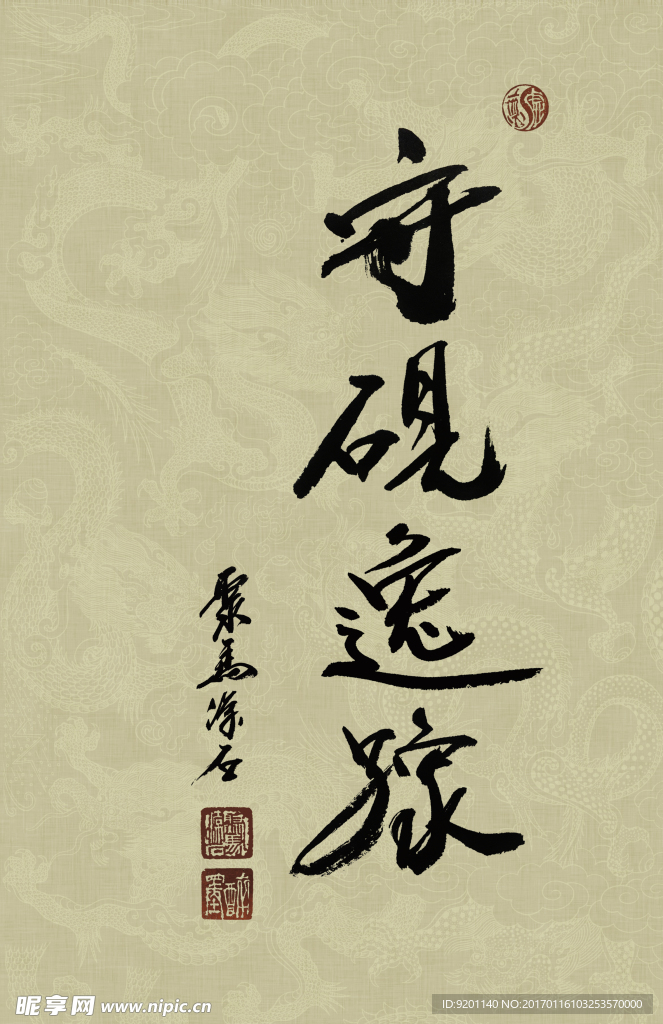 守硯逸豫
聚馬涤石
昵享网 www.nipic.cn
ID:9201140 NO:20170116103253570000